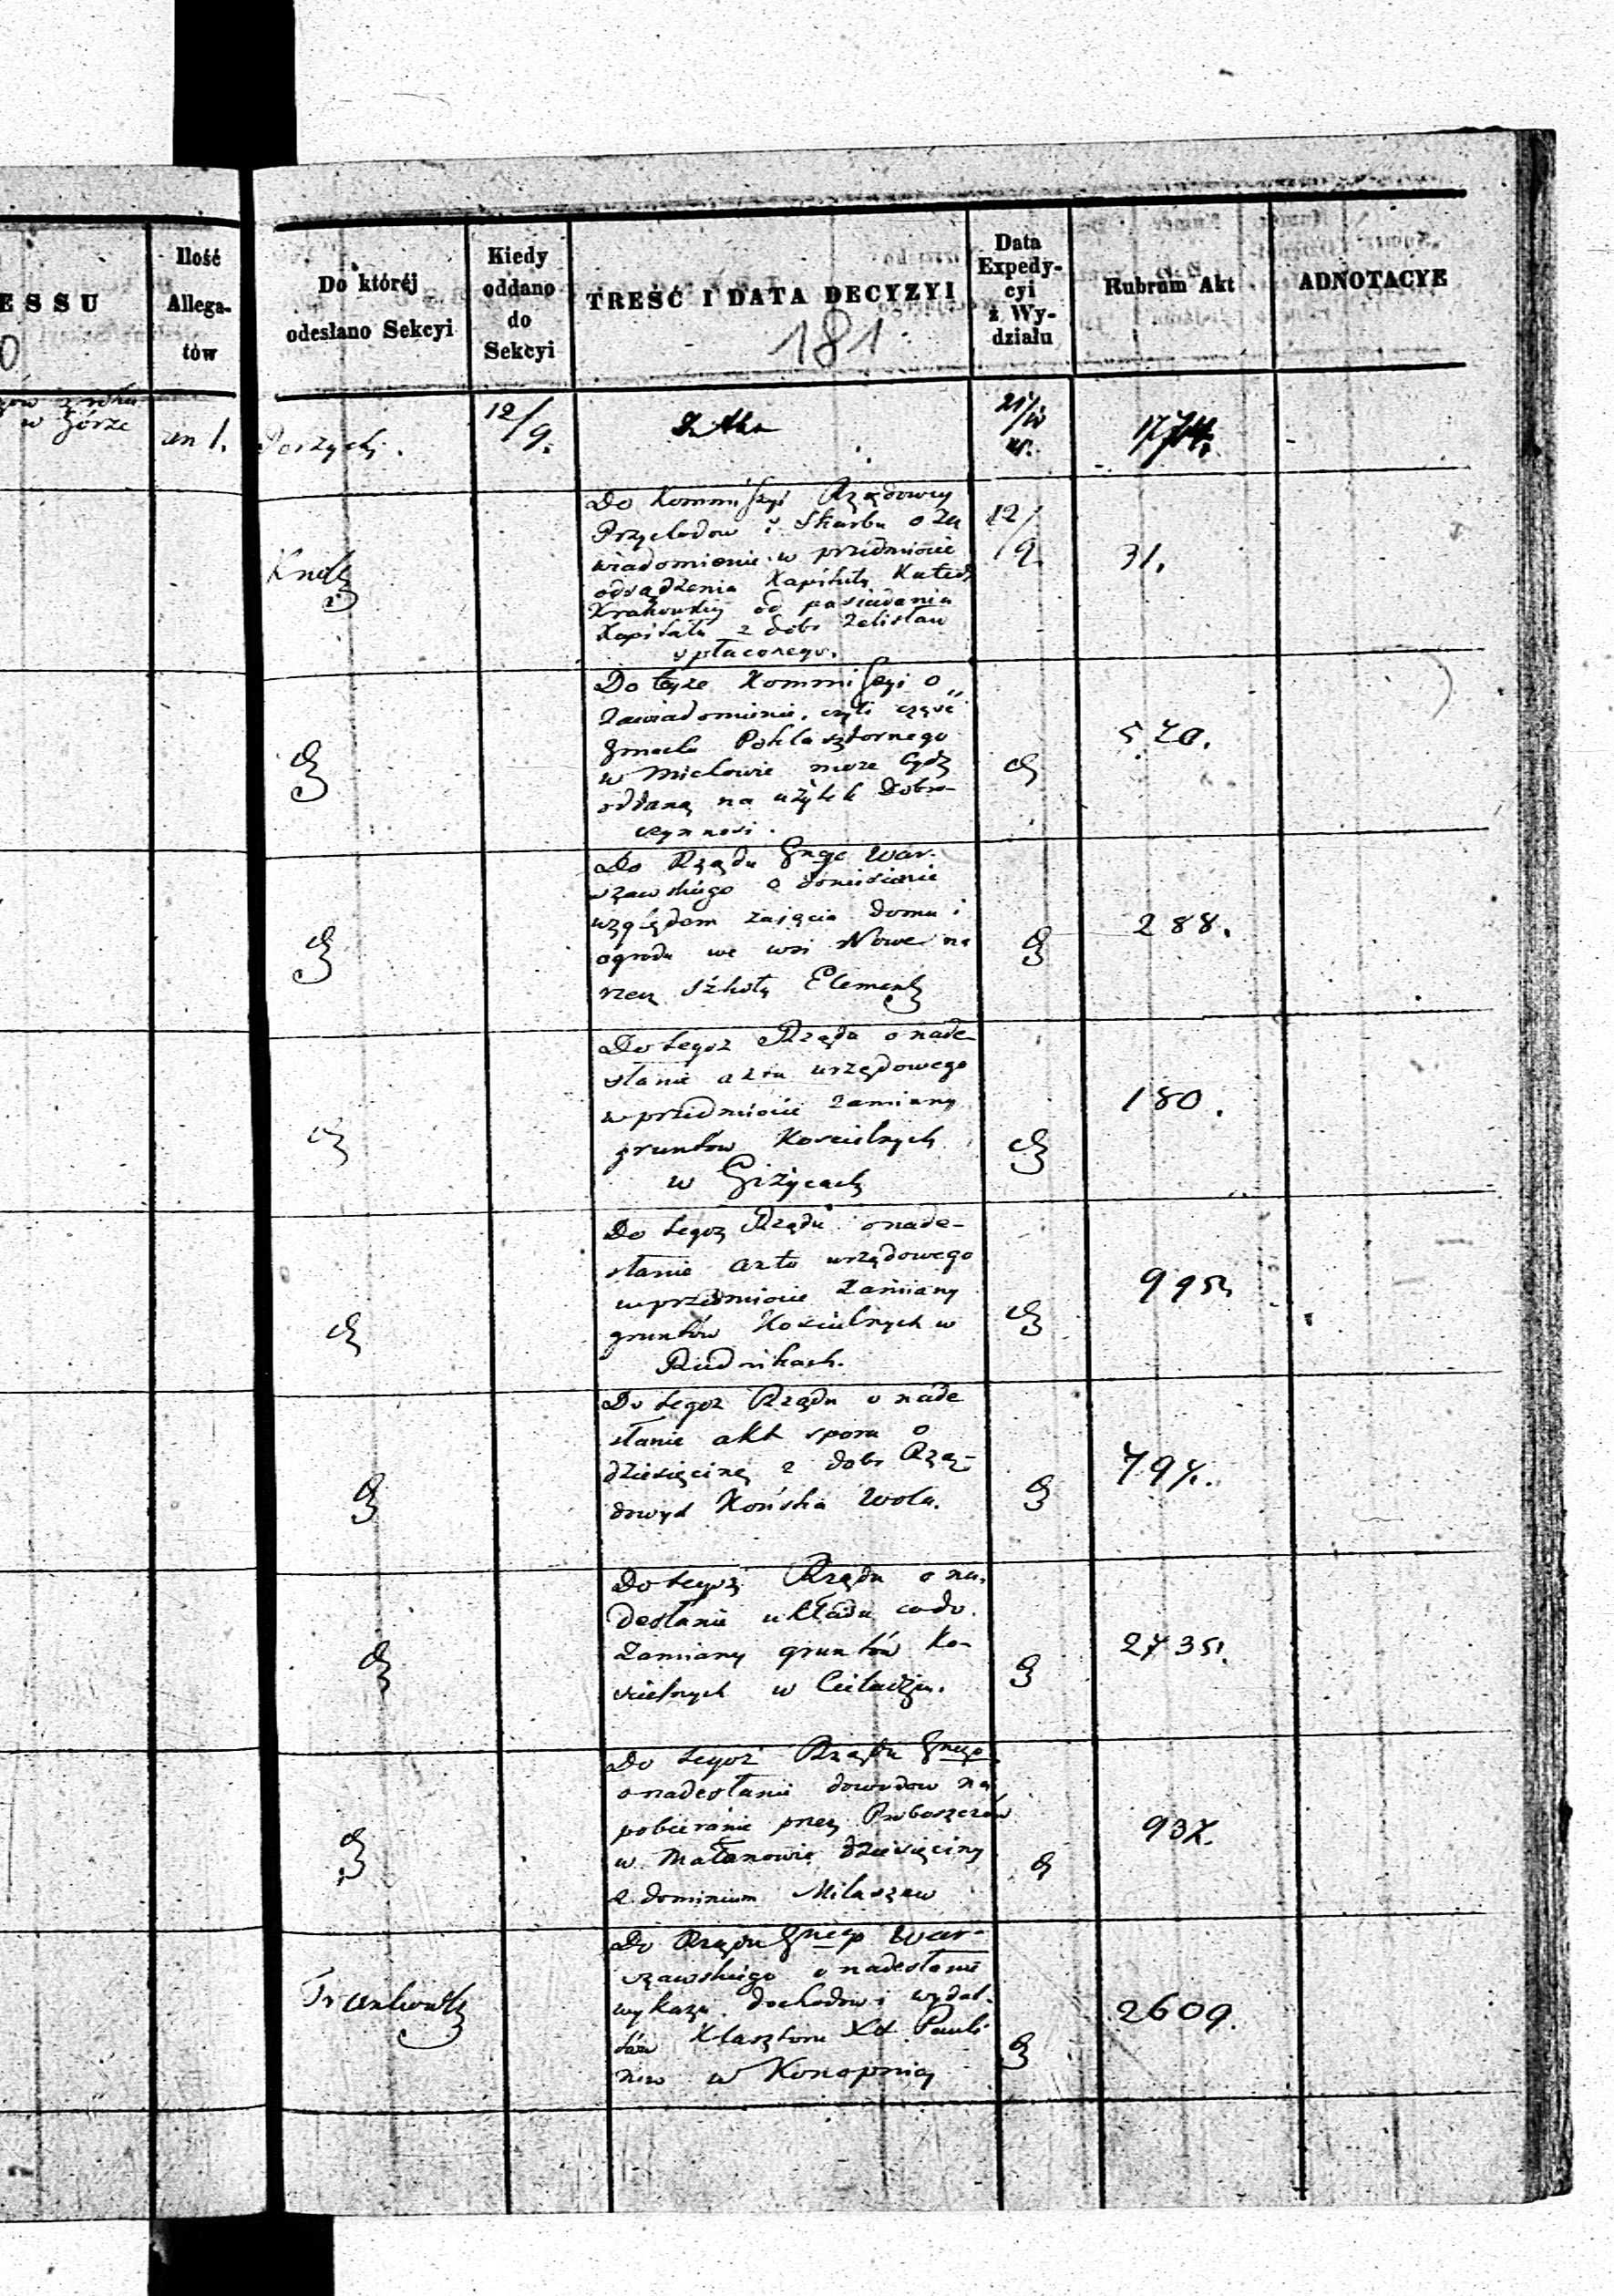 ESSU
Ilość
Allega-
tów
Do któréj
odesłano Sekcyi
Kiedy
oddano
do
Sekcyi
TREŚĆ I DATA DECYZYI
181
Data
Expedy-
cyi
z Wy-
działu
Rubrum Akt
ADNOTACYE
w Górze
an 1.
12/9.
Do Kommissyi Rządowey
Przychodow i Skarbu o Za
wiadomienie w przedmiocie
odsądzenia Kapituły Kated
Krakowskiej od posiadania
Kapitału z dobr Zelisław
spłaconego.
12/9.
31.
Do teyże Kommissyi o
Zawiadomienie, czyli część
Gmachu Poklasztornego
w Miechowie może bydź
oddaną na użytek Dobro-
czynnosi.
570.
Do Rządu Gnego War-
szawskiego o doniesienie
względem zajęcia domu i
ogrodu we wsi Nowe na
rzecz Szkoły Element
288.
Do tegoż Rządu o nade-
słanie aktu urzędowego
w przedmiocie zamiany
gruntów Kościelnych
w Giżycach
180.
Do tegoż Rządu o nade-
słanie aktu urzędowego
w przedmiocie Zamiany
gruntów Kościelnych w
Rudnikach.
995
Do tegoż Rządu o nade
słanie akt sporu o
dziesięcinę z dobr Rzą-
dowych Końska Wola.
797.
Do tegoż Rządu o na-
desłanie układu co do
Zamiany gruntów Ko-
scielnych w
2735.
Do tegoż Rządu Gnego
o nadesłanie dowodow na
pobieranie przez Proboszczów
w Małanowie dziesięciny
z dominium Miłaszew
937.
Do Rządu Gnego War-
szawskiego o nadesłanie
wykazu dochodów i wydat-
ków Klasztoru XX Pauli
nów w Konopnicy
2609.